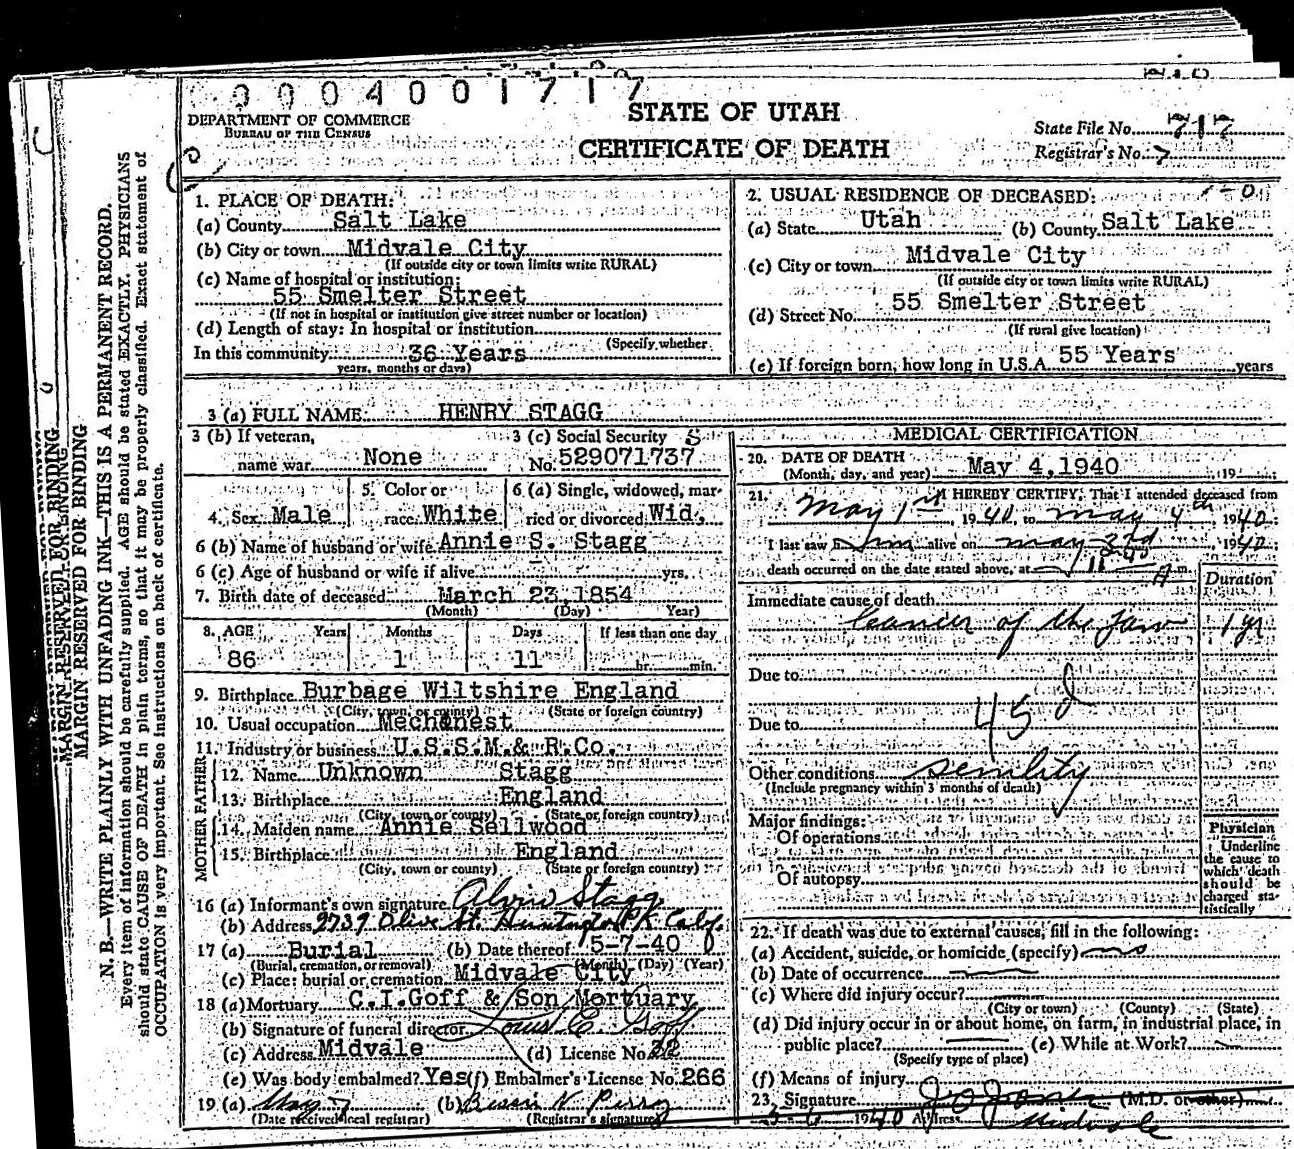 0004001717
DEPARTMENT OF COMMERCE
BUREAU OF THE CENSUS
STATE OF UTAH
CERTIFICATE OF DEATH
State File No. 717
Registrar's No. 7
MARGIN RESERVED FOR BINDING
N. B.—WRITE PLAINLY WITH UNFADING INK—THIS IS A PERMANENT RECORD.
Every item of information should be carefully supplied. AGE should be stated EXACTLY. PHYSICIANS
should state CAUSE OF DEATH in plain terms, so that it may be properly classified. Exact statement of
OCCUPATION is very important. See instructions on back of certificate.
1. PLACE OF DEATH:
(a) County Salt Lake
(b) City or town Midvale City
(If outside city or town limits write RURAL)
(c) Name of hospital or institution:
55 Smelter Street
(If not in hospital or institution give street number or location)
(d) Length of stay: In hospital or institution
(Specify whether
In this community 36 Years
years, months or days)
2. USUAL RESIDENCE OF DECEASED:
(a) State Utah (b) County Salt Lake
(c) City or town Midvale City
(If outside city or town limits write RURAL)
(d) Street No. 55 Smelter Street
(If rural give location)
(e) If foreign born, how long in U.S.A. 55 Years years
3 (a) FULL NAME HENRY STAGG
3 (b) If veteran, name war None
3 (c) Social Security No. 529071737
4. Sex Male
5. Color or race White
6 (a) Single, widowed, married or divorced Wid.
6 (b) Name of husband or wife Annie S. Stagg
6 (c) Age of husband or wife if alive yrs.
7. Birth date of deceased March 23, 1854
(Month) (Day) Year)
8. AGE Years Months Days If less than one day
86 1 11 hr. min.
9. Birthplace Burbage Wiltshire England
(City, town, or county) (State or foreign country)
10. Usual occupation Mechanest
11. Industry or business U.S.S.M.& R.Co.
FATHER
12. Name Unknown Stagg
13. Birthplace England
(City, town or county) (State or foreign country)
MOTHER
14. Maiden name Annie Sellwood
15. Birthplace England
(City, town or county) (State or foreign country)
16 (a) Informant's own signature Alvin Stagg
(b) Address 2739 Olive St. Huntington Pk Calif.
17 (a) Burial (b) Date thereof 5-7-40
(Burial, cremation, or removal) (Month) (Day) (Year)
(c) Place: burial or cremation Midvale City
18 (a) Mortuary C.I.Goff & Son Mortuary
(b) Signature of funeral director Louis E. Goff
(c) Address Midvale (d) License No. 32
(e) Was body embalmed? Yes (f) Embalmer's License No. 266
19 (a) May 7 (b) Bessie N Perry
(Date received local registrar) (Registrar's signature)
MEDICAL CERTIFICATION
20. DATE OF DEATH
(Month, day, and year) May 4, 1940 , 19
21. I HEREBY CERTIFY, That I attended deceased from
May 1st 1940, to May 4th 1940;
I last saw him alive on May 3rd, 1940;
death occurred on the date stated above, at A m.
Duration
Immediate cause of death
Cancer of the Jaw 1 yr
Due to
Due to
45 d
Other conditions senility
(Include pregnancy within 3 months of death)
Major findings:
Of operations
Of autopsy
Physician
Underline
the cause to
which death
should be
charged statistically
22. If death was due to external causes, fill in the following:
(a) Accident, suicide, or homicide (specify) no
(b) Date of occurrence
(c) Where did injury occur?
(City or town) (County) (State)
(d) Did injury occur in or about home, on farm, in industrial place, in
public place? (e) While at Work?
(Specify type of place)
(f) Means of injury
23. Signature J O Jones (M.D. or other)
5-6 1940 Address Midvale